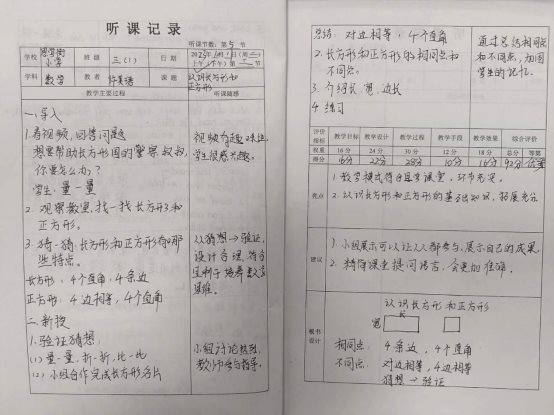 听课记录
听课节数：第 5 节
学校 小学 班级 三（1） 日期
学科 数学 教者 课题 认识长方形和正方形
教学主要过程 听课随感
一、导入
1.看视频，回答问题 视频有趣味性，
想要帮助长方形国的警察叔叔， 学生很感兴趣。
你要怎么办？
学生：量一量
2.观察教室，找一找长方形和
正方形。
3.猜一猜：长方形和正方形有哪 从猜想→验证，
些特点。 设计合理，符合
长方形：4个直角，4条边 且利于培养数学
正方形：4边相等，4个直角 思维。
二、新授
1.验证猜想：
（1）量一量，折一折，比一比 小组讨论热烈，
（2）小组合作完成长方形名片 教师参与指导。
总结：对边相等，4个直角 通过总结相同点
2.长方形和正方形的相同点和 和不同点，加固
不同点。 学生的记忆。
3.介绍长、宽、边长
4.练习
评价指标 教学目标 教学设计 教学过程 教学手段 教学效果 综合评价
权重 16分 24分 30分 12分 18分 总分 等第
得分 16分 22分 28分 10分 16分 92分 优秀
亮点
1.教学模式符合且学课堂，环节充实。
2.以认识长方形和正方形的基础知识，拓展充分
建议
1.小组展示可以让人人都参与，展示自己的成果。
2.精简课堂提问语言，会更加准确。
板书设计
认识长方形和正方形
长
宽
相同点： 4条边，4个直角
不同点： 对边相等，4边相等
猜想→验证